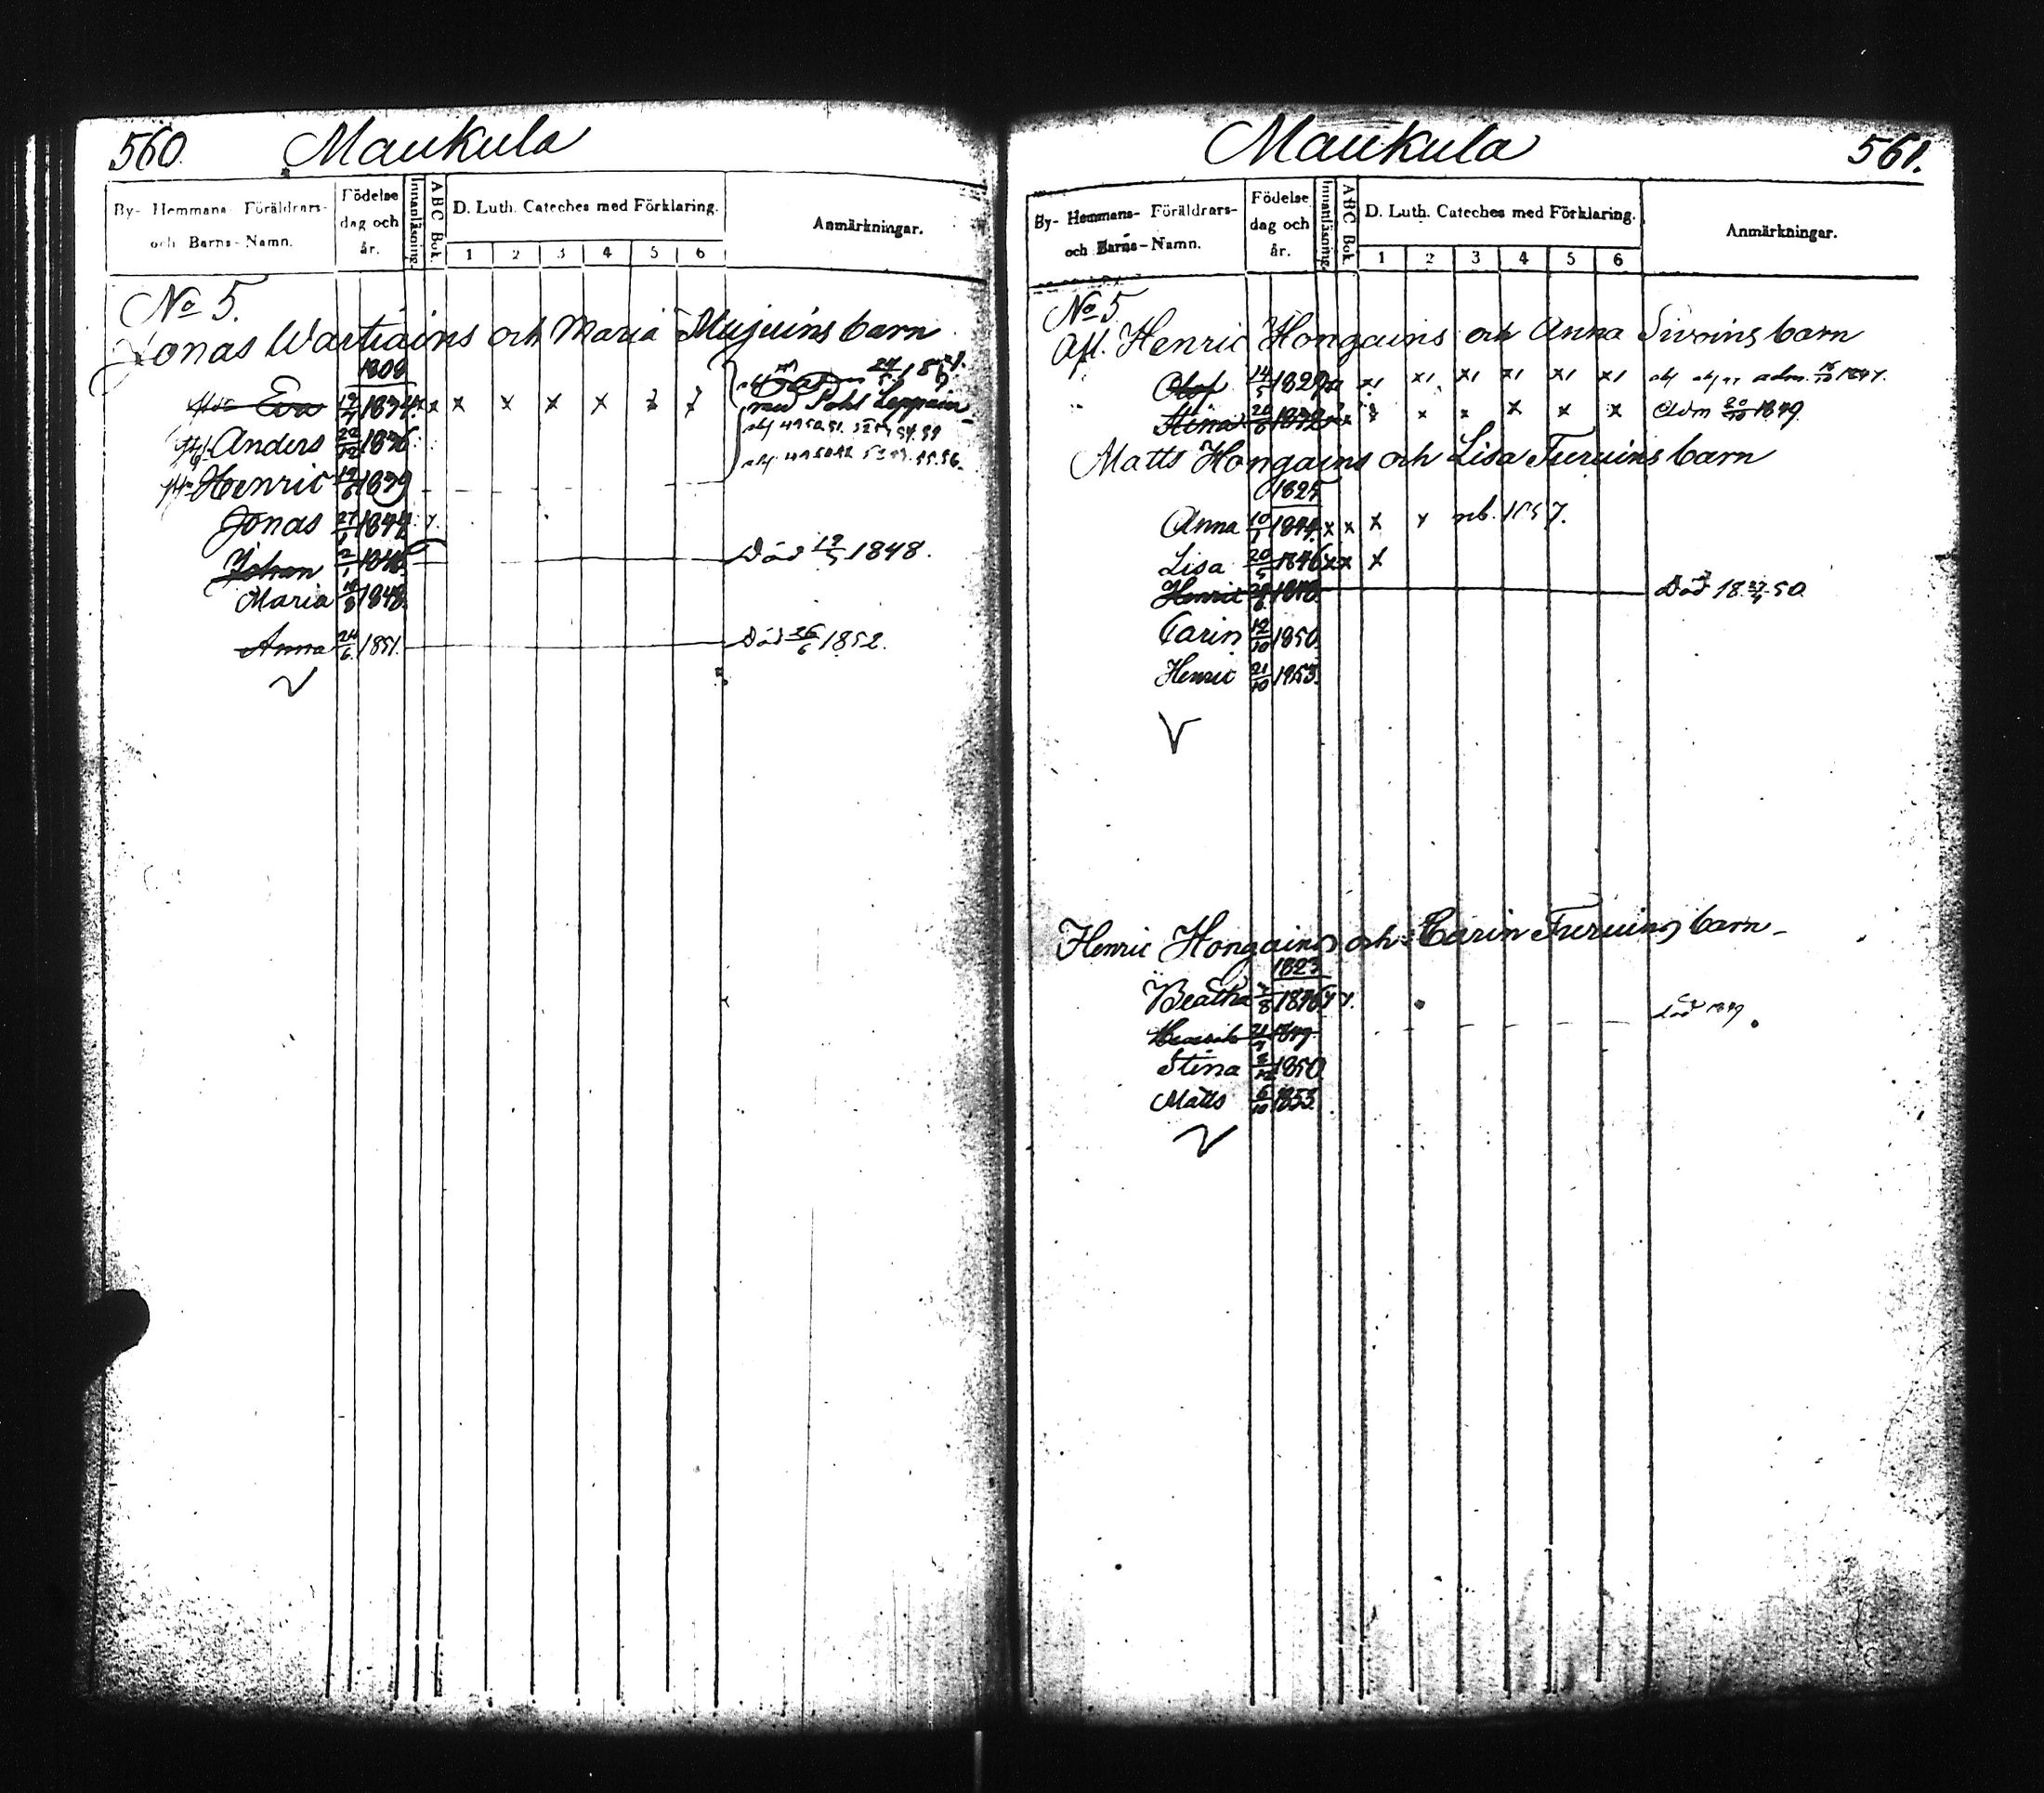 560. Maukula
By- Hemmans- Föräldrars- och Barns-Namn. Födelse dag och år. Innanläsning. A B C Bok. D. Luth. Cateches med Förklaring. 1 2 3 4 5 6 Anmärkningar.
No 5.
Jonas Wartiains och Maria Mujuins barn
1808
Eva 1834 x x x x x x
med Pohl Leppäin
Anders 22/12 1836
Henric 1839
Jonas 27/1 1844
Johan 2/1 1846 Död 12/5 1848.
Maria 1848
Anna 24/6 1851. Död 26/6 1852.
Maukula 561.
By- Hemmans- Föräldrars- och Barns-Namn. Födelse dag och år. Innanläsning. A B C Bok. D. Luth. Cateches med Förklaring. 1 2 3 4 5 6 Anmärkningar.
No 5
Afl. Henric Hongains och Anna Sivoins barn
Olof 14/5 1829 x1 x1 x1 x1 x1 x1 adm. 1847.
Stina 1832 x x x x x Adm 20/10 1849.
Matts Hongains och Lisa Turuins barn
1825
Anna 10/1 1844 x x x x
Lisa 20/5 1846 x x x
Henric 1848 Död 18 27/4 50
Carin 12/10 1850
Henric 21/10 1853.
Henric Hongains och Carin Turuins barn
1823
Beatha 1846
1849 död 1849
Stina 1850
Matts 6/10 1853